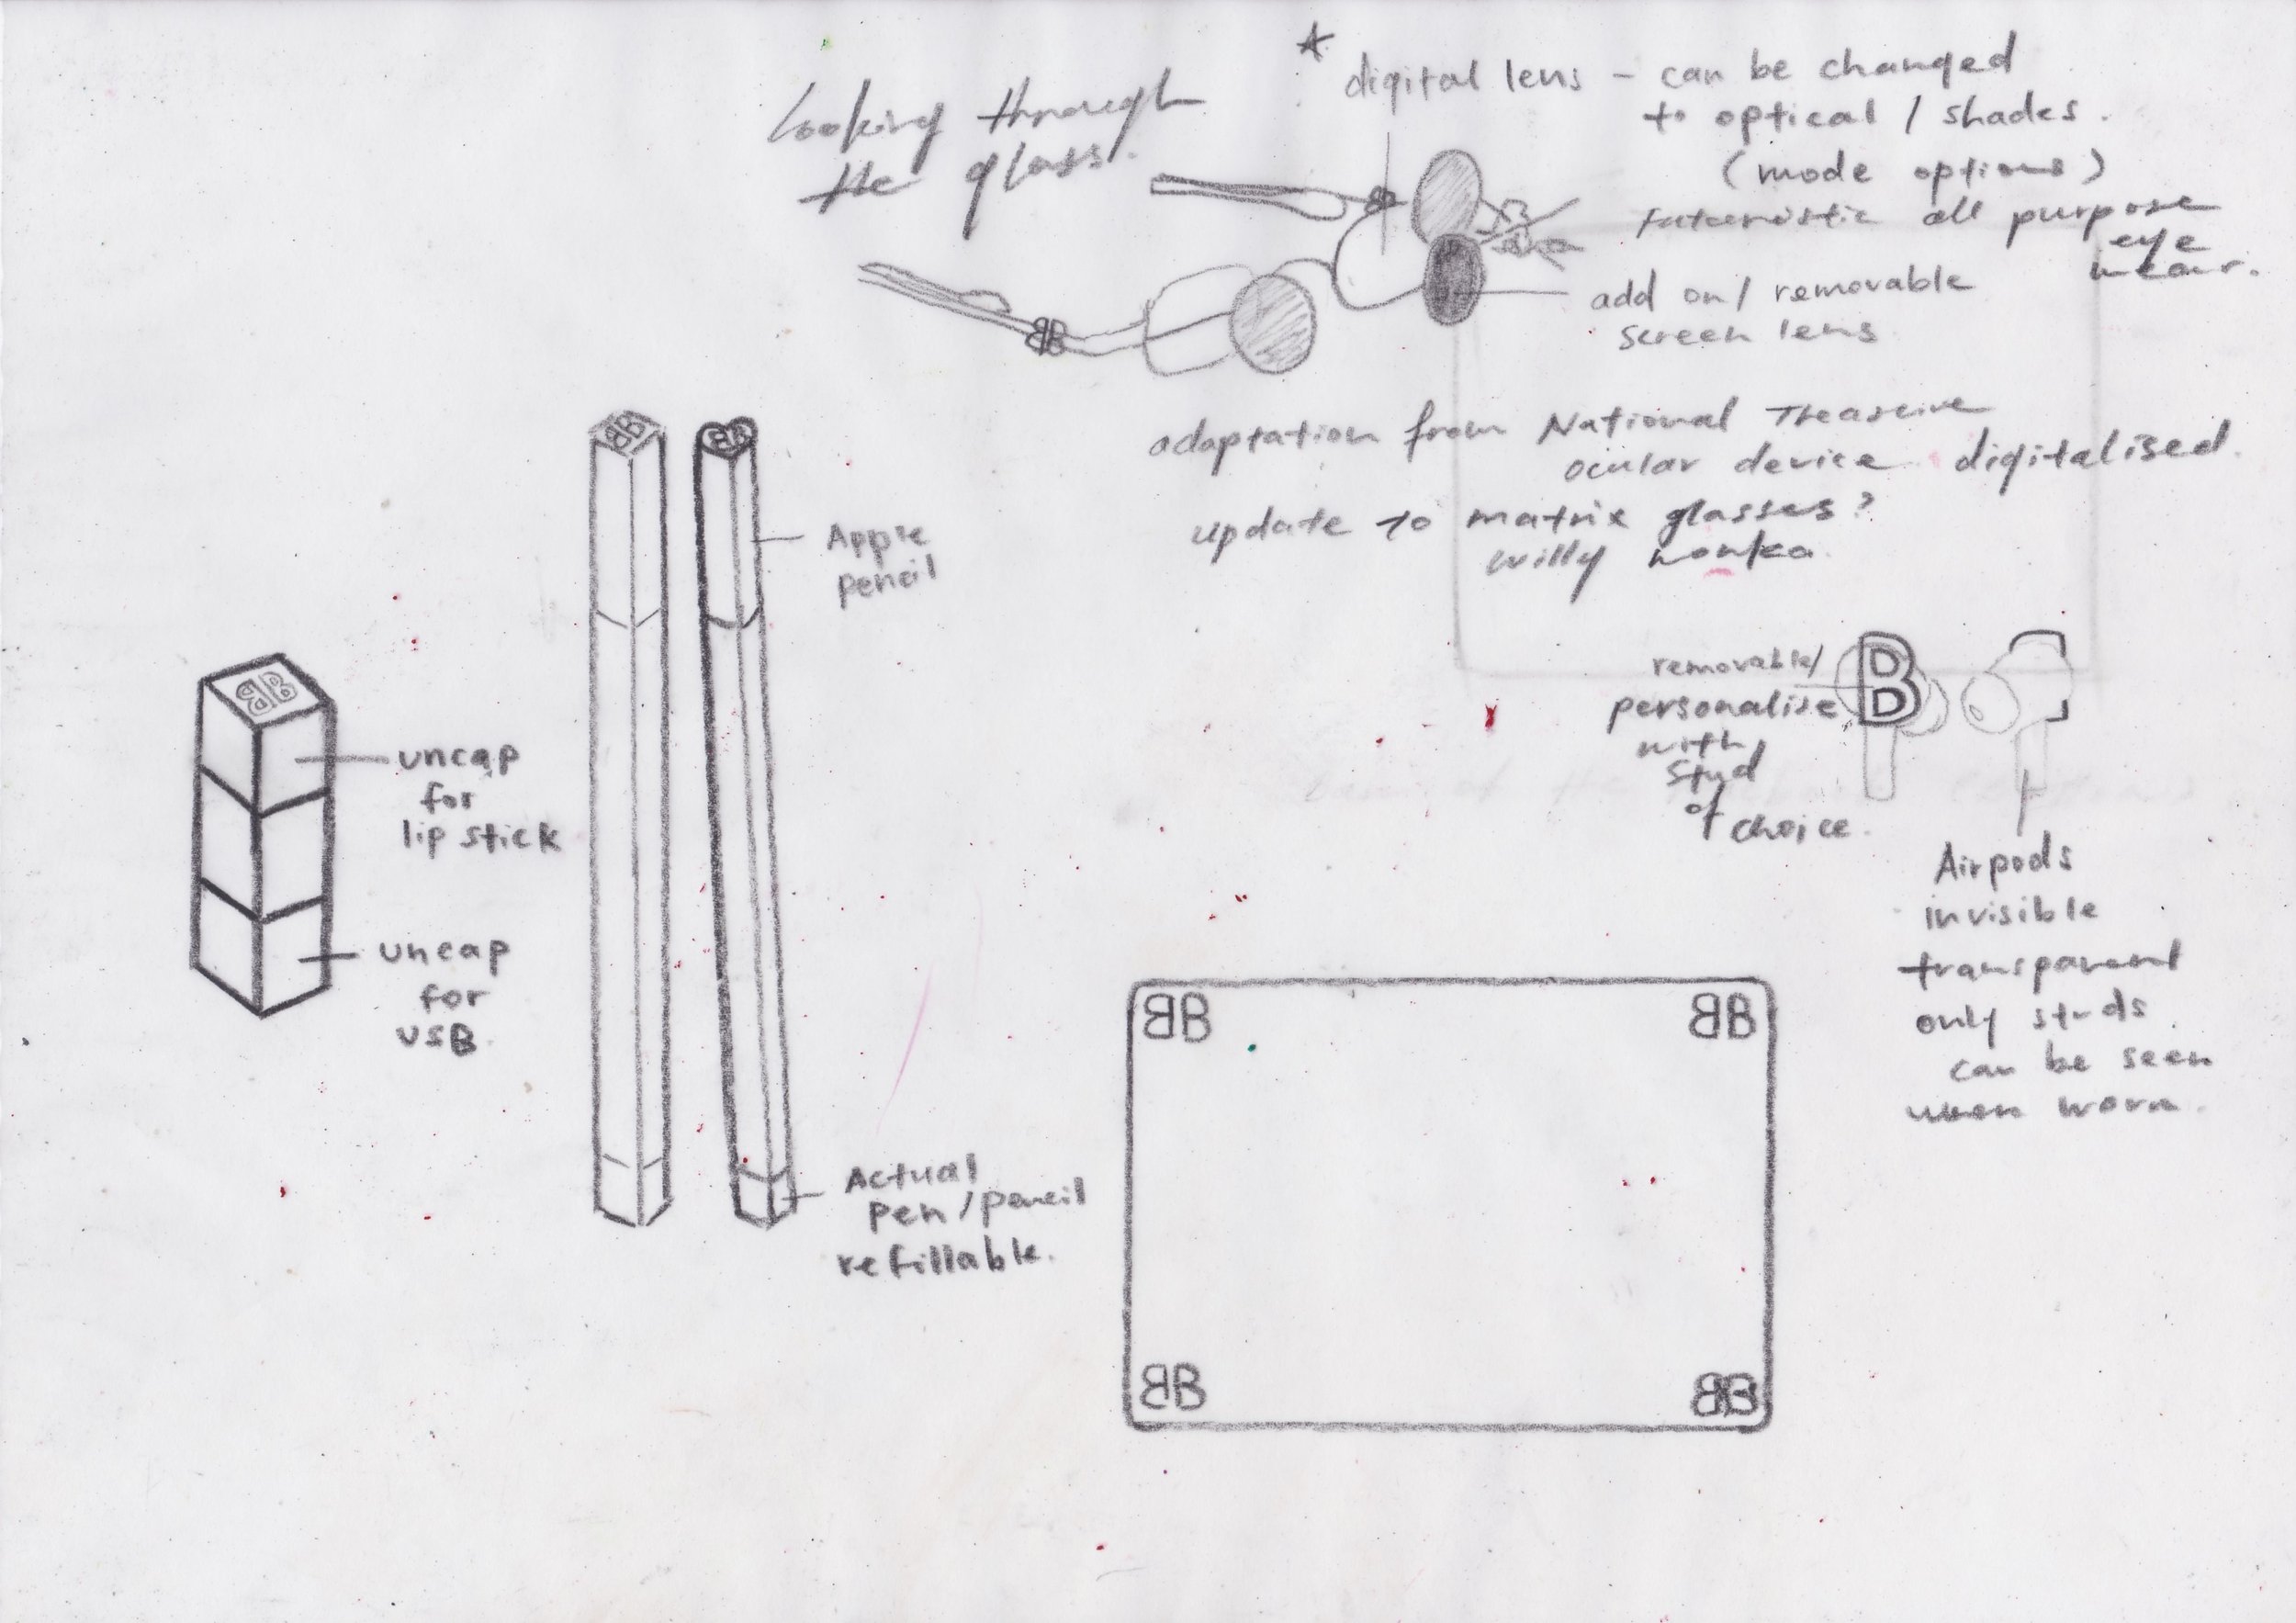 Looking through
the glass.
* digital lens - can be changed
to optical / shades.
(mode options)
futuristic all purpose
eye
wear.
add on/ removable
screen lens
adaptation from National Treasure
ocular device digitalised.
update to matrix glasses?
willy wonka
BB
BB
Apple
pencil
BB
uncap
for
lip stick
uncap
for
USB.
Actual
Pen/pencil
refillable.
removable/
personalise
with
stud
of
choice.
B
Airpods
invisible
transparent
only studs
can be seen
when worn.
BB BB
BB BB